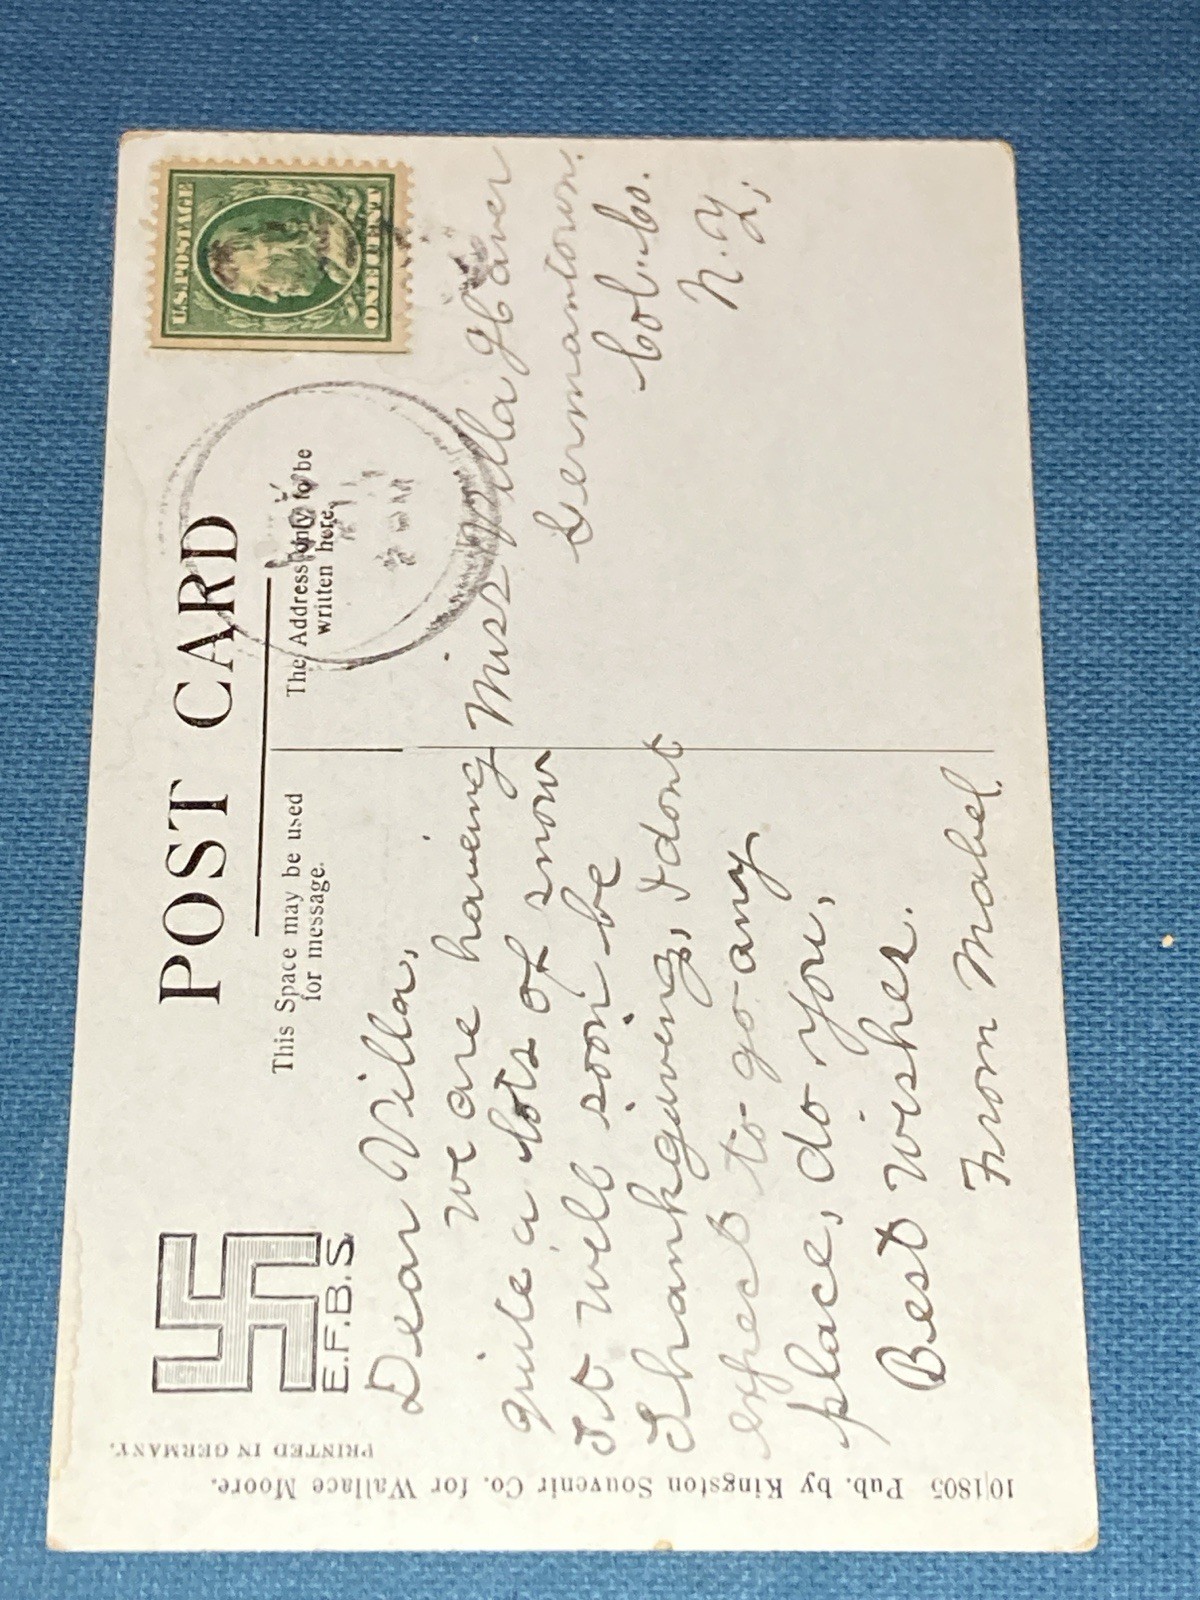 POST CARD
This Space may be used
for message.
The Address only to be
written here.
E.F.B.S.
U.S. POSTAGE
ONE CENT
Dear Villa,
we are having
quite a lots of snow
It will soon be
Thankgiving, I dont
expect to go any
place, do you,
Best wishes.
From Mabel.
Miss Villa
Germantown.
Col. Co.
N.Y,
10|1805 Pub. by Kingston Souvenir Co. for Wallace Moore.
PRINTED IN GERMANY.